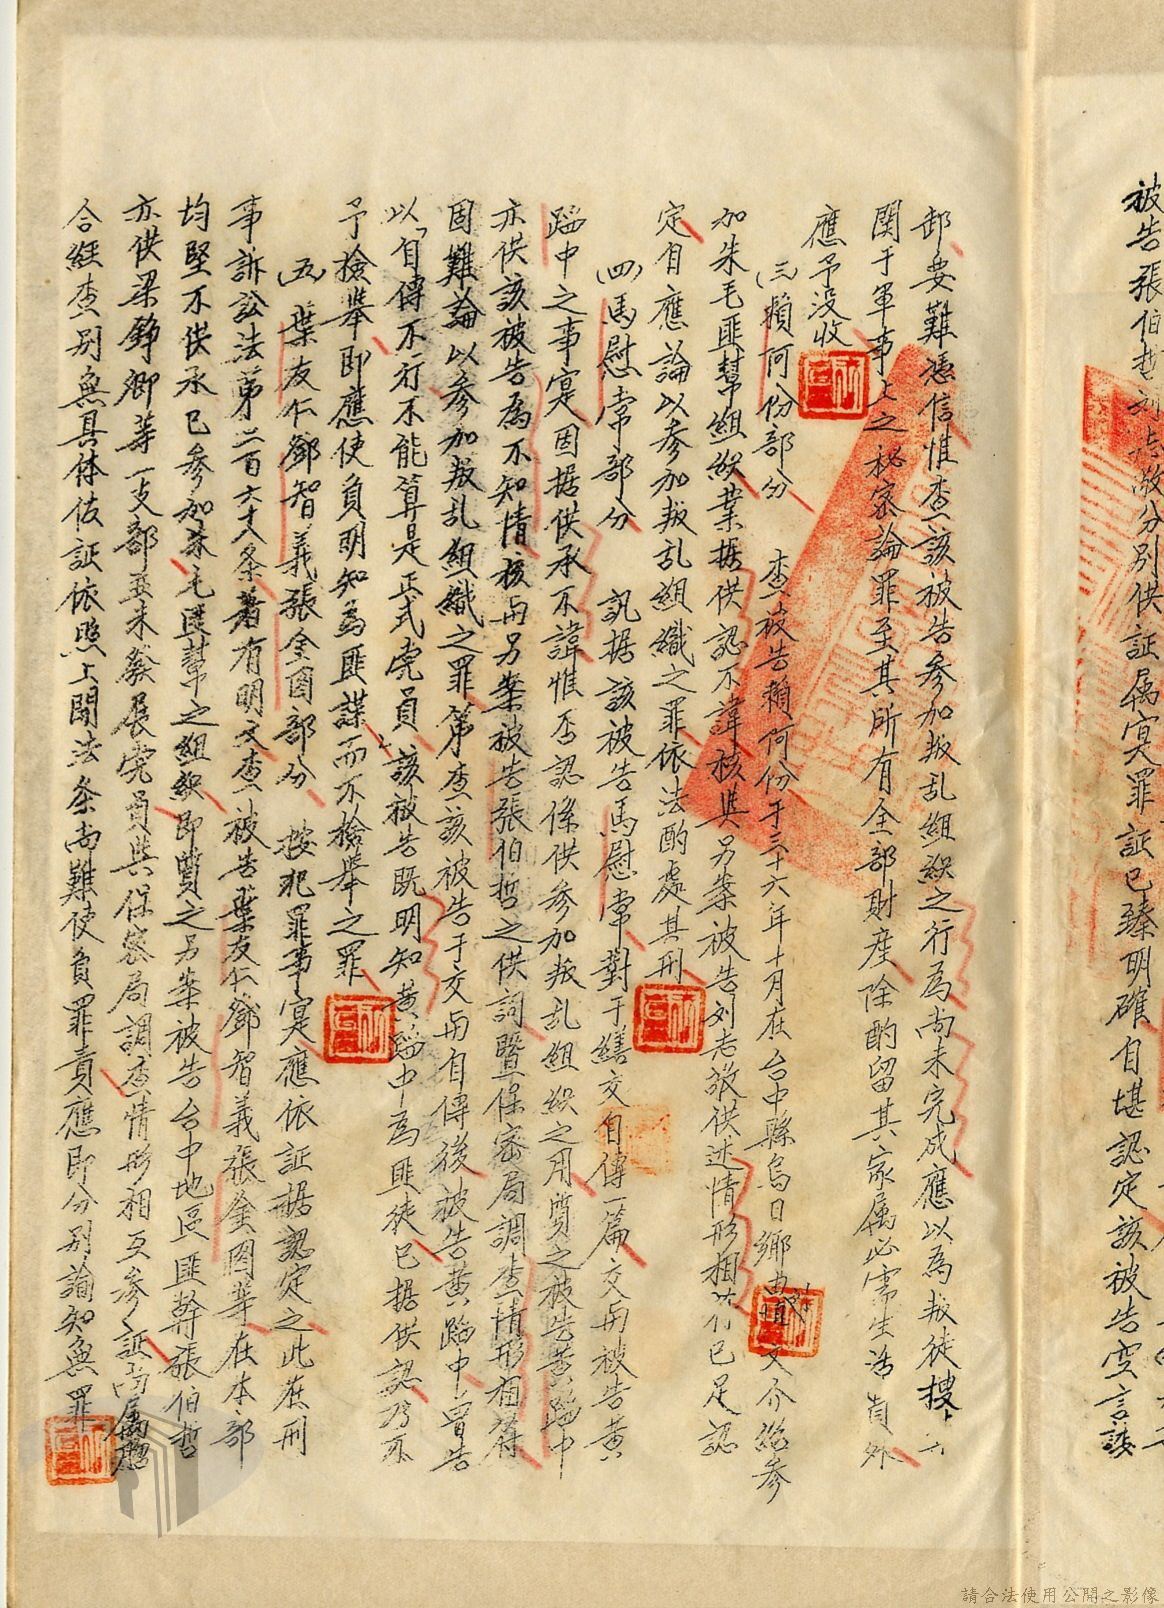 被告張伯哲刘志敬分別供証属寔罪証已臻明確自堪認定該被告空言諉
卸要難憑信惟查該被告參加叛乱組織之行為尚未完成應以為叛徒搜
関于軍事上之秘密論罪至其所有全部財產除酌留其家属必需生活費外
應予没收
(三)賴阿份部分　查被告賴阿份于三十六年十月在台中縣烏日鄉由文介紹參
加朱毛匪幫組織業据供認不諱核與另案被告刘志敬供述情形相符已足認
定自應論以參加叛乱組織之罪依法酌處其刑
(四)馬慰常部分　訊据該被告馬慰常對于繕交自傳一篇交与被告黃
蹈中之事寔固据供承不諱惟否認係供參加叛乱組織之用質之被告黃蹈中
亦供該被告為不知情核与另案被告張伯哲之供詞暨保密局調查情形相符
固難論以參加叛乱組織之罪第查該被告于交与自傳後被告黃蹈中曾告
以「自傳不行不能算是正式党員」該被告既明知黃蹈中為匪徒已据供認乃不
予檢舉即應使負明知為匪諜而不檢舉之罪
(五)葉友仁鄧智義張金囡部分　按犯罪事寔應依証据認定之此在刑
事訴訟法第二百六十八条著有明文查被告葉友仁鄧智義張金囡等在本部
均堅不供承已參加朱毛匪幫之組織即質之另案被告台中地區匪幹張伯哲
亦供梁錚卿等一支部並未發展党員與保密局調查情形相互參証尚属脗
合經查別無具体佐証依照上開法条尚難使負罪責應即分別諭知無罪
請合法使用公開之影像